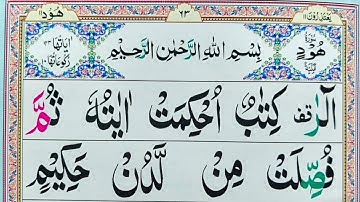 يعتذرون ١١
٢٣
هود ١١
سورة
هُوۡدٍ
بِسۡمِ اللّٰهِ الرَّحۡمٰنِ الرَّحِيۡمِ
اٰيَاتُهَا ١٢٣
رُكُوۡعَاتُهَا ١٠
الٓرٰ ࣞ كِتٰبٌ اُحۡكِمَتۡ اٰيٰتُهٗ ثُمَّ
فُصِّلَتۡ مِنۡ لَّدُنۡ حَكِيۡمٍ